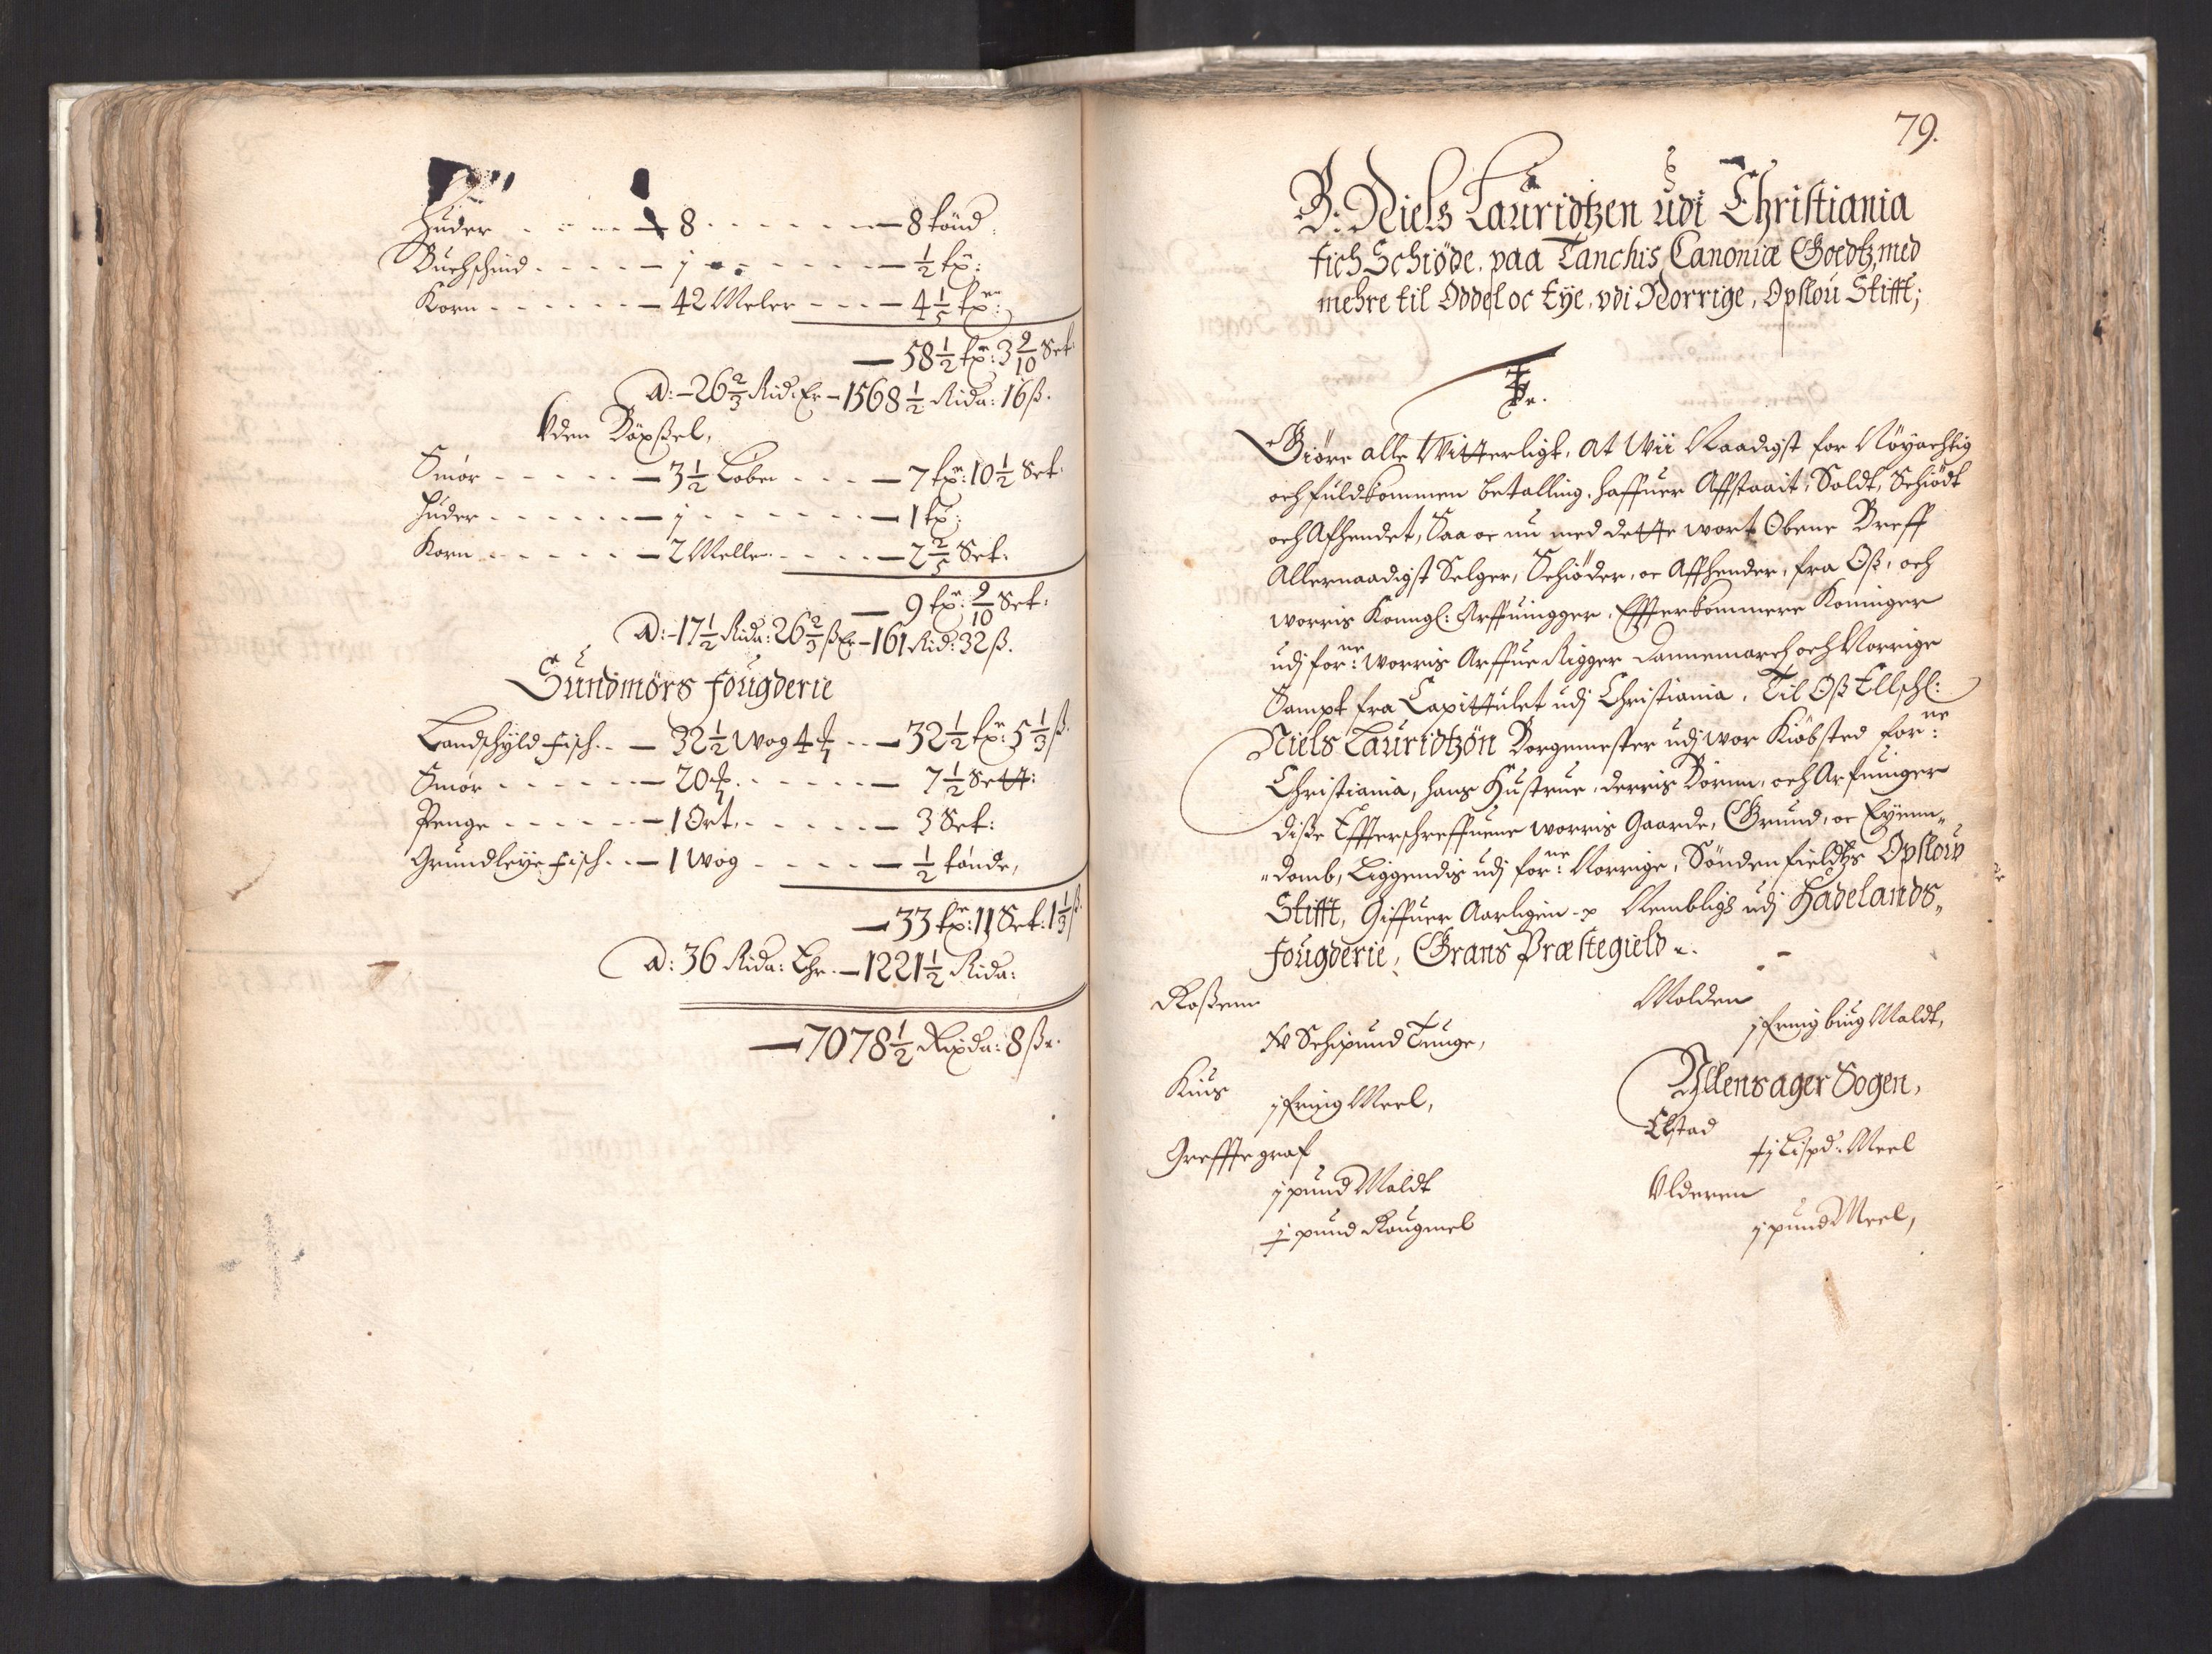 Huder - - - - 8 - - - - - - 8 tönd:
Buchschind - - - - j - - - - - ½ tn:
Korn - - - - - - 42 Meler - - - 4 1/5 tnr:
58½ tnr: 3 9/10 Set:
A: - 26 2/3 Rid: Er - 1568½ Rida: 16 ß.
Uden Böxßel,
Smör - - - - - 3½ Løber - - - 7 tnr: 10½ Set:
Huder - - - - - j - - - - - 1 tn:
Korn - - - - - 2 Meller - - - 2 2/5 Set:
9 tnr: 9/10 Set:
A: - 17½ Rida: 26 2/3 ß Er - 161 Rid: 32 ß.
Sundmörs fougderie
Landschyld fisch - - 32½ Wog 4 - - 32½ tnr: 5 1/3 ß
Smör - - - - - 20 - - - - - 7½ Sett:
Penge - - - - - 1 Ort, - - - - - 3 Set:
Grundleye fisch - - 1 Wog - - - - - ½ tönde,
33 tnr: 11 Set: 1 1/3 ß
A: 36 Rida: Ehr - 1221½ Rida:
7078½ Rixda: 8 ß.
79.
B: Niels Lauridtzen udi Christiania
fich Schiøde, paa Tanchis Canoniæ Goedtz, med
mehre til Oddel oc Eÿe, vdi Norrige, Opslou Stifft;
Giöre alle Witterligt, at Wii Naadigst for Nöyachtig
och fuldkommen betalling, haffuer Affstaait, Soldt, Schiödt
och Afhendet, Saa oc nu med dette wort Obene Breff
Allernaadigst Selger, Schiöder, oc Affhender, fra Oß, och
worris Konngl: Arffuingger, Effterkommere Koninger
udj forne: worris Arffue Rigger Dannemarch och Norrige
Sampt fra Capittulet udj Christiania, Til Oß Ellschl:
Niels Lauridtzön Borgemester udj wor Kiöbsted forne:
Christiania, hans Hustrue, derris Börnn, och Arfuinger
diße Effterschreffuene worris Gaarde, Grund, oc Eyenn„
„domb, Liggendis udj forne: Norrige, Söndenfieldtzs Opslow
Stifft, Giffuer Aarligen - Nembligs udj Hadelands„
fougderie, Grans Præstegield.
Roßenn
Schipund Tunge,
Kius
j fring Meel,
Grefftegraf
j pund Maldt
j pund Rougmel
Molden
j fring biug Maldt,
Ullensager Sogen,
Elstad
ij Lispd: Meel
Ulderen
j pund Meel,